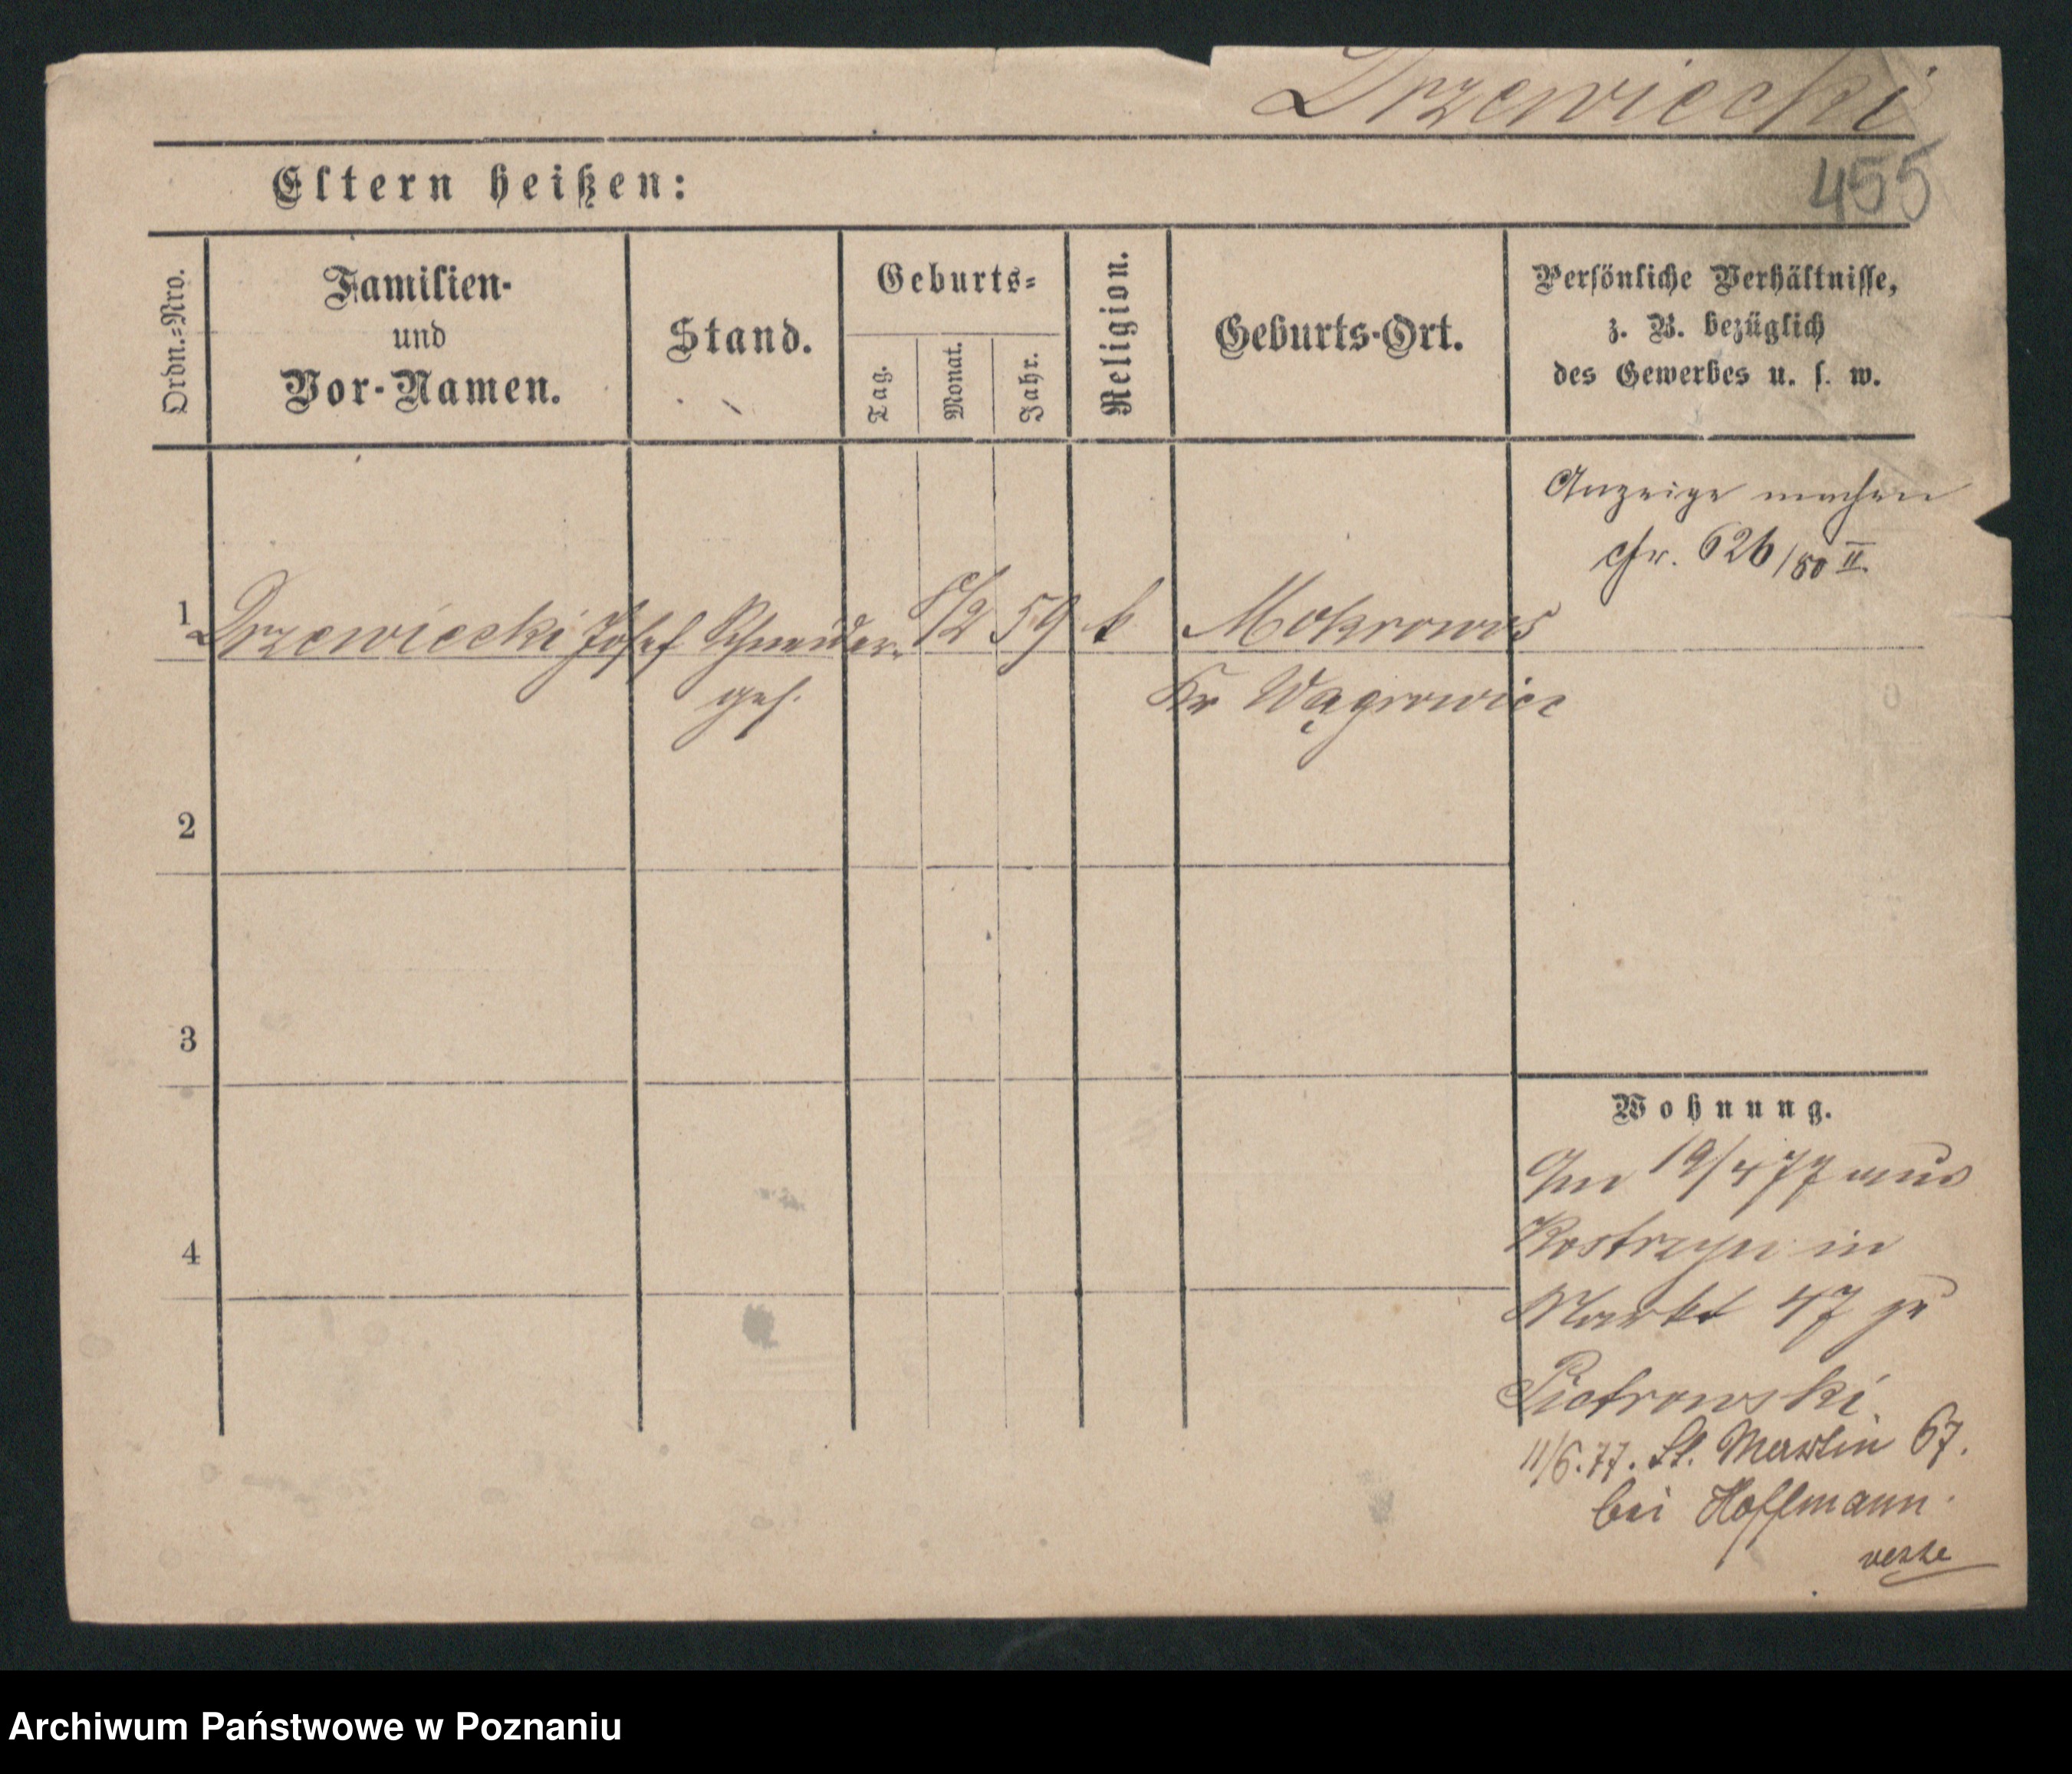 Drzewiecki
455
Eltern heißen:
Ordn.=Nro.
Familien-
und
Vor-Namen.
Stand.
Geburts=
Tag.
Monat.
Jahr.
Religion.
Geburts-Ort.
Persönliche Verhältnisse,
z. B. bezüglich
des Gewerbes u. s. w.
Anzeige machen
cfr. 626/80 II.
1 Drzewiecki Josef Schneider 8/2 59 k Mokronos
ges. Kr Wągrowiec
2
3
4
Wohnung.
Am 19/4 77 aus
Kostrzyn in
Markt 47 zu
Piotrowski
11/6.77. St. Martin 67.
bei Hoffmann.
verte
Archiwum Państwowe w Poznaniu